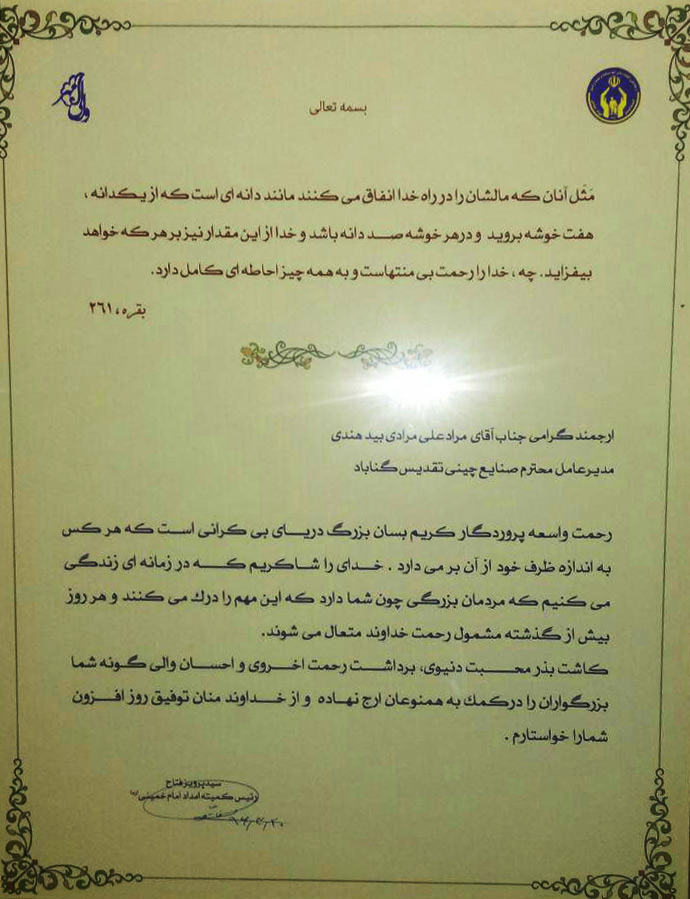 بسمه تعالی
مَثَل آنان که مالشان را در راه خدا انفاق می کنند مانند دانه ای است که از یکدانه ،
هفت خوشه بروید و در هر خوشه صد دانه باشد و خدا از این مقدار نیز بر هر که خواهد
بیفزاید. چه ، خدا را رحمت بی منتهاست و به همه چیز احاطه ای کامل دارد.
بقره، ۲۶۱
ارجمند گرامی جناب آقای مراد علی مرادی بید هندی
مدیر عامل محترم صنایع چینی تقدیس گناباد
رحمت واسعه پروردگار کریم بسان بزرگ دریای بی کرانی است که هر کس
به اندازه ظرف خود از آن بر می دارد . خدای را شاکریم که در زمانه ای زندگی
می کنیم که مردمان بزرگی چون شما دارد که این مهم را درك می کنند و هر روز
بیش از گذشته مشمول رحمت خداوند متعال می شوند.
کاشت بذر محبت دنیوی، برداشت رحمت اخروی و احسان والی گونه شما
بزرگواران را در کمك به همنوعان ارج نهاده و از خداوند منان توفیق روز افزون
شما را خواستارم .
سید پرویز فتاح
رئیس کمیته امداد امام خمینی